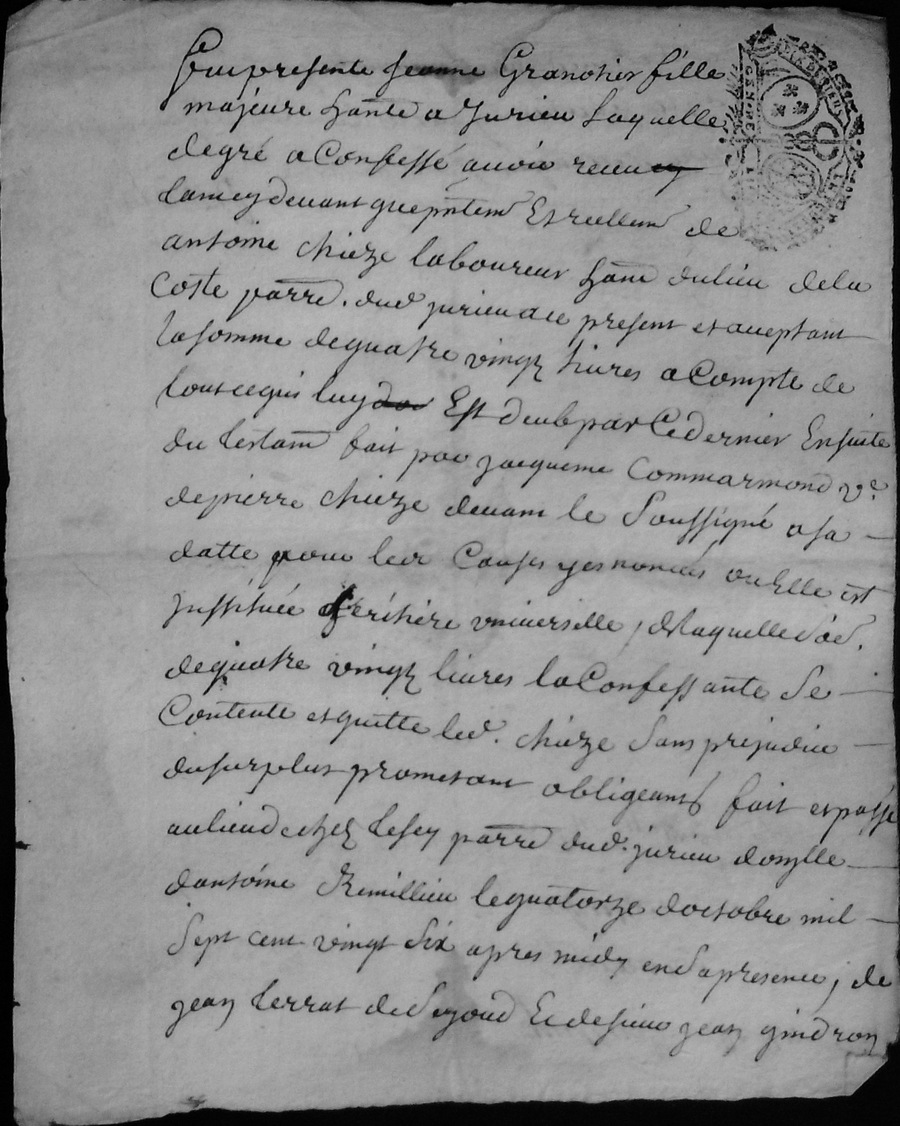 Fut presente Jeanne Granotier fille
majeure hãnte a Jurieu Laquelle
degré a Confessé avoir receu
tant cy devant que pñtem̃ Et reellem̃ de
antoine chieze laboureur hãnt du lieu de la
Coste parr̃e. dud jurieu a ce present et aceptant
la somme de quatre vingt livres a Compte de
tout ce qui luy Est deub par Ce dernier En suite
du testam̃ fait par jacqueme Commarmond v.e
de pierre chieze devant le Soussigné a sa
datte pour les Causes y enoncées ou Elle est
Instituée heritiere universelle, de laquelle so͠e.
de quatre vingt livres la Confessante Se
Contente et quitte led. chieze Sans prejudice
du surplus prometant obligeant fait et passé
au lieu de chez parr̃e dud. jurieu domylle
d'antoine Remillieu le quatorze d'octobre mil
Sept cent vingt Six apres midy en Sa presence, de
jean terrat de Et de sieur jean gindron